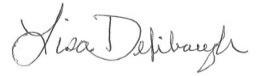 Lisa Defibaugh